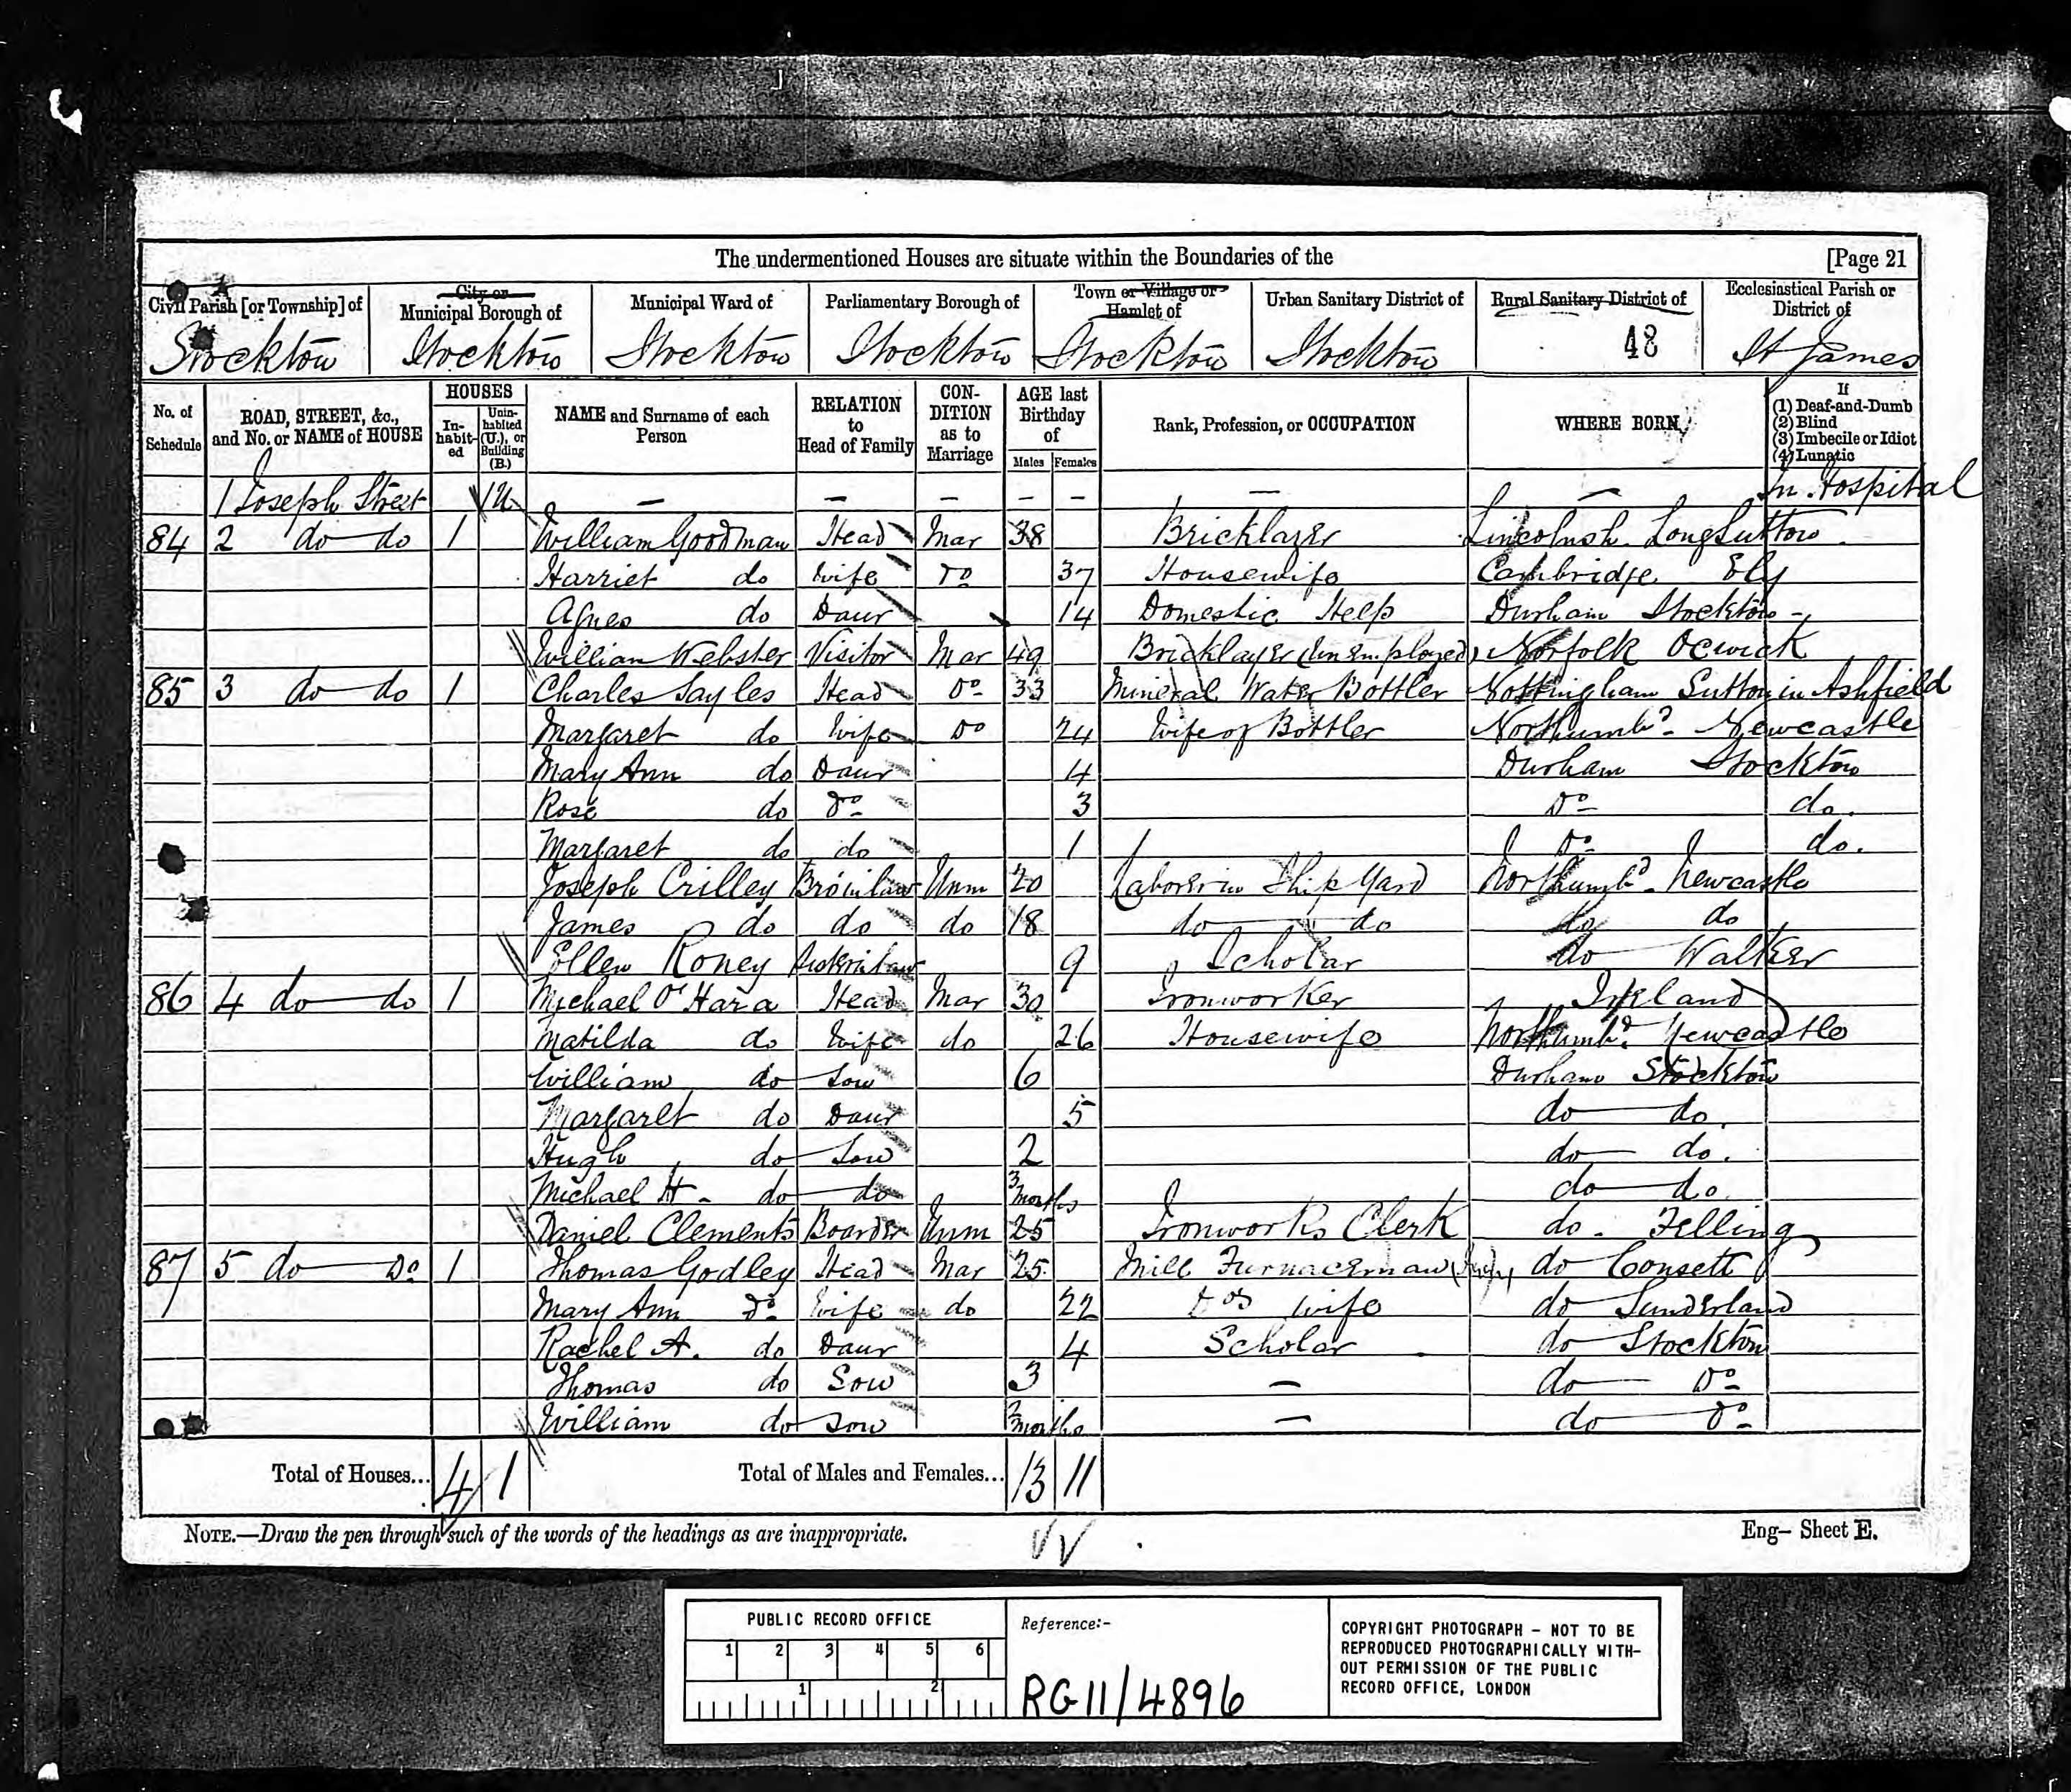 The undermentioned Houses are situate within the Boundaries of the [Page 21
Civil Parish [or Township] of City or Municipal Borough of Municipal Ward of Parliamentary Borough of Town or Village or Hamlet of Urban Sanitary District of Rural Sanitary District of Ecclesiastical Parish or District of
Stockton Stockton Stockton Stockton Stockton Stockton 48 St James
No. of Schedule ROAD, STREET, &c., and No. or NAME of HOUSE HOUSES In-habit-ed Unin-habited (U.), or Building (B.) NAME and Surname of each Person RELATION to Head of Family CON-DITION as to Marriage AGE last Birthday of Males Females Rank, Profession, or OCCUPATION WHERE BORN If (1) Deaf-and-Dumb (2) Blind (3) Imbecile or Idiot (4) Lunatic
1 Joseph Street 1U — — — — — — — In Hospital
84 2 do do 1 William Goodman Head Mar 38 Bricklayer Lincolnsh. Long Sutton
Harriet do Wife Do 37 Housewife Cambridge Ely
Agnes do Daur 14 Domestic Help Durham Stockton -
William Webster Visitor Mar 49 Bricklayer (Unemployed) Norfolk Ocwick
85 3 do do 1 Charles Sayles Head Do 33 Mineral Water Bottler Nottingham Sutton in Ashfield
Margaret do Wife Do 24 Wife of Bottler Northumbd. Newcastle
Mary Ann do Daur 4 Durham Stockton
Rose do Do 3 Do do.
Margaret do do 1 Do do.
Joseph Crilley Broinlaw Unm 20 Laborer in Ship Yard Northumbd. Newcastle
James do do do 18 do do do do
Ellen Roney Sisterinlaw 9 Scholar do Walker
86 4 do do 1 Michael O'Hara Head Mar 30 Ironworker Ireland
Matilda do Wife do 26 Housewife Northumbd. Newcastle
William do Son 6 Durham Stockton
Margaret do Daur 5 do do.
Hugh do Son 2 do do.
Michael H. do do 3 months do do.
Daniel Clements Boarder Unm 25 Ironworks Clerk do. Felling
87 5 do Do 1 Thomas Godley Head Mar 25 Mill Furnaceman do Consett
Mary Ann Do Wife do 22 Dos wife do Sunderland
Rachel A. do Daur 4 Scholar do Stockton
Thomas do Son 3 — do Do
William do Son 2 months — do Do
Total of Houses... 4 1 Total of Males and Females... 13 11
NOTE.—Draw the pen through such of the words of the headings as are inappropriate. Eng– Sheet E.
PUBLIC RECORD OFFICE
1 2 3 4 5 6
1 2
Reference:-
RG11/4896
COPYRIGHT PHOTOGRAPH - NOT TO BE
REPRODUCED PHOTOGRAPHICALLY WITH-
OUT PERMISSION OF THE PUBLIC
RECORD OFFICE, LONDON